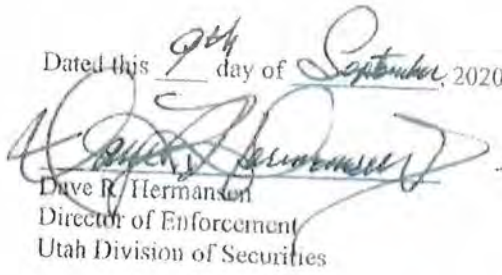 Dated this 9th day of September, 2020
Dave R. Hermansen
Director of Enforcement
Utah Division of Securities